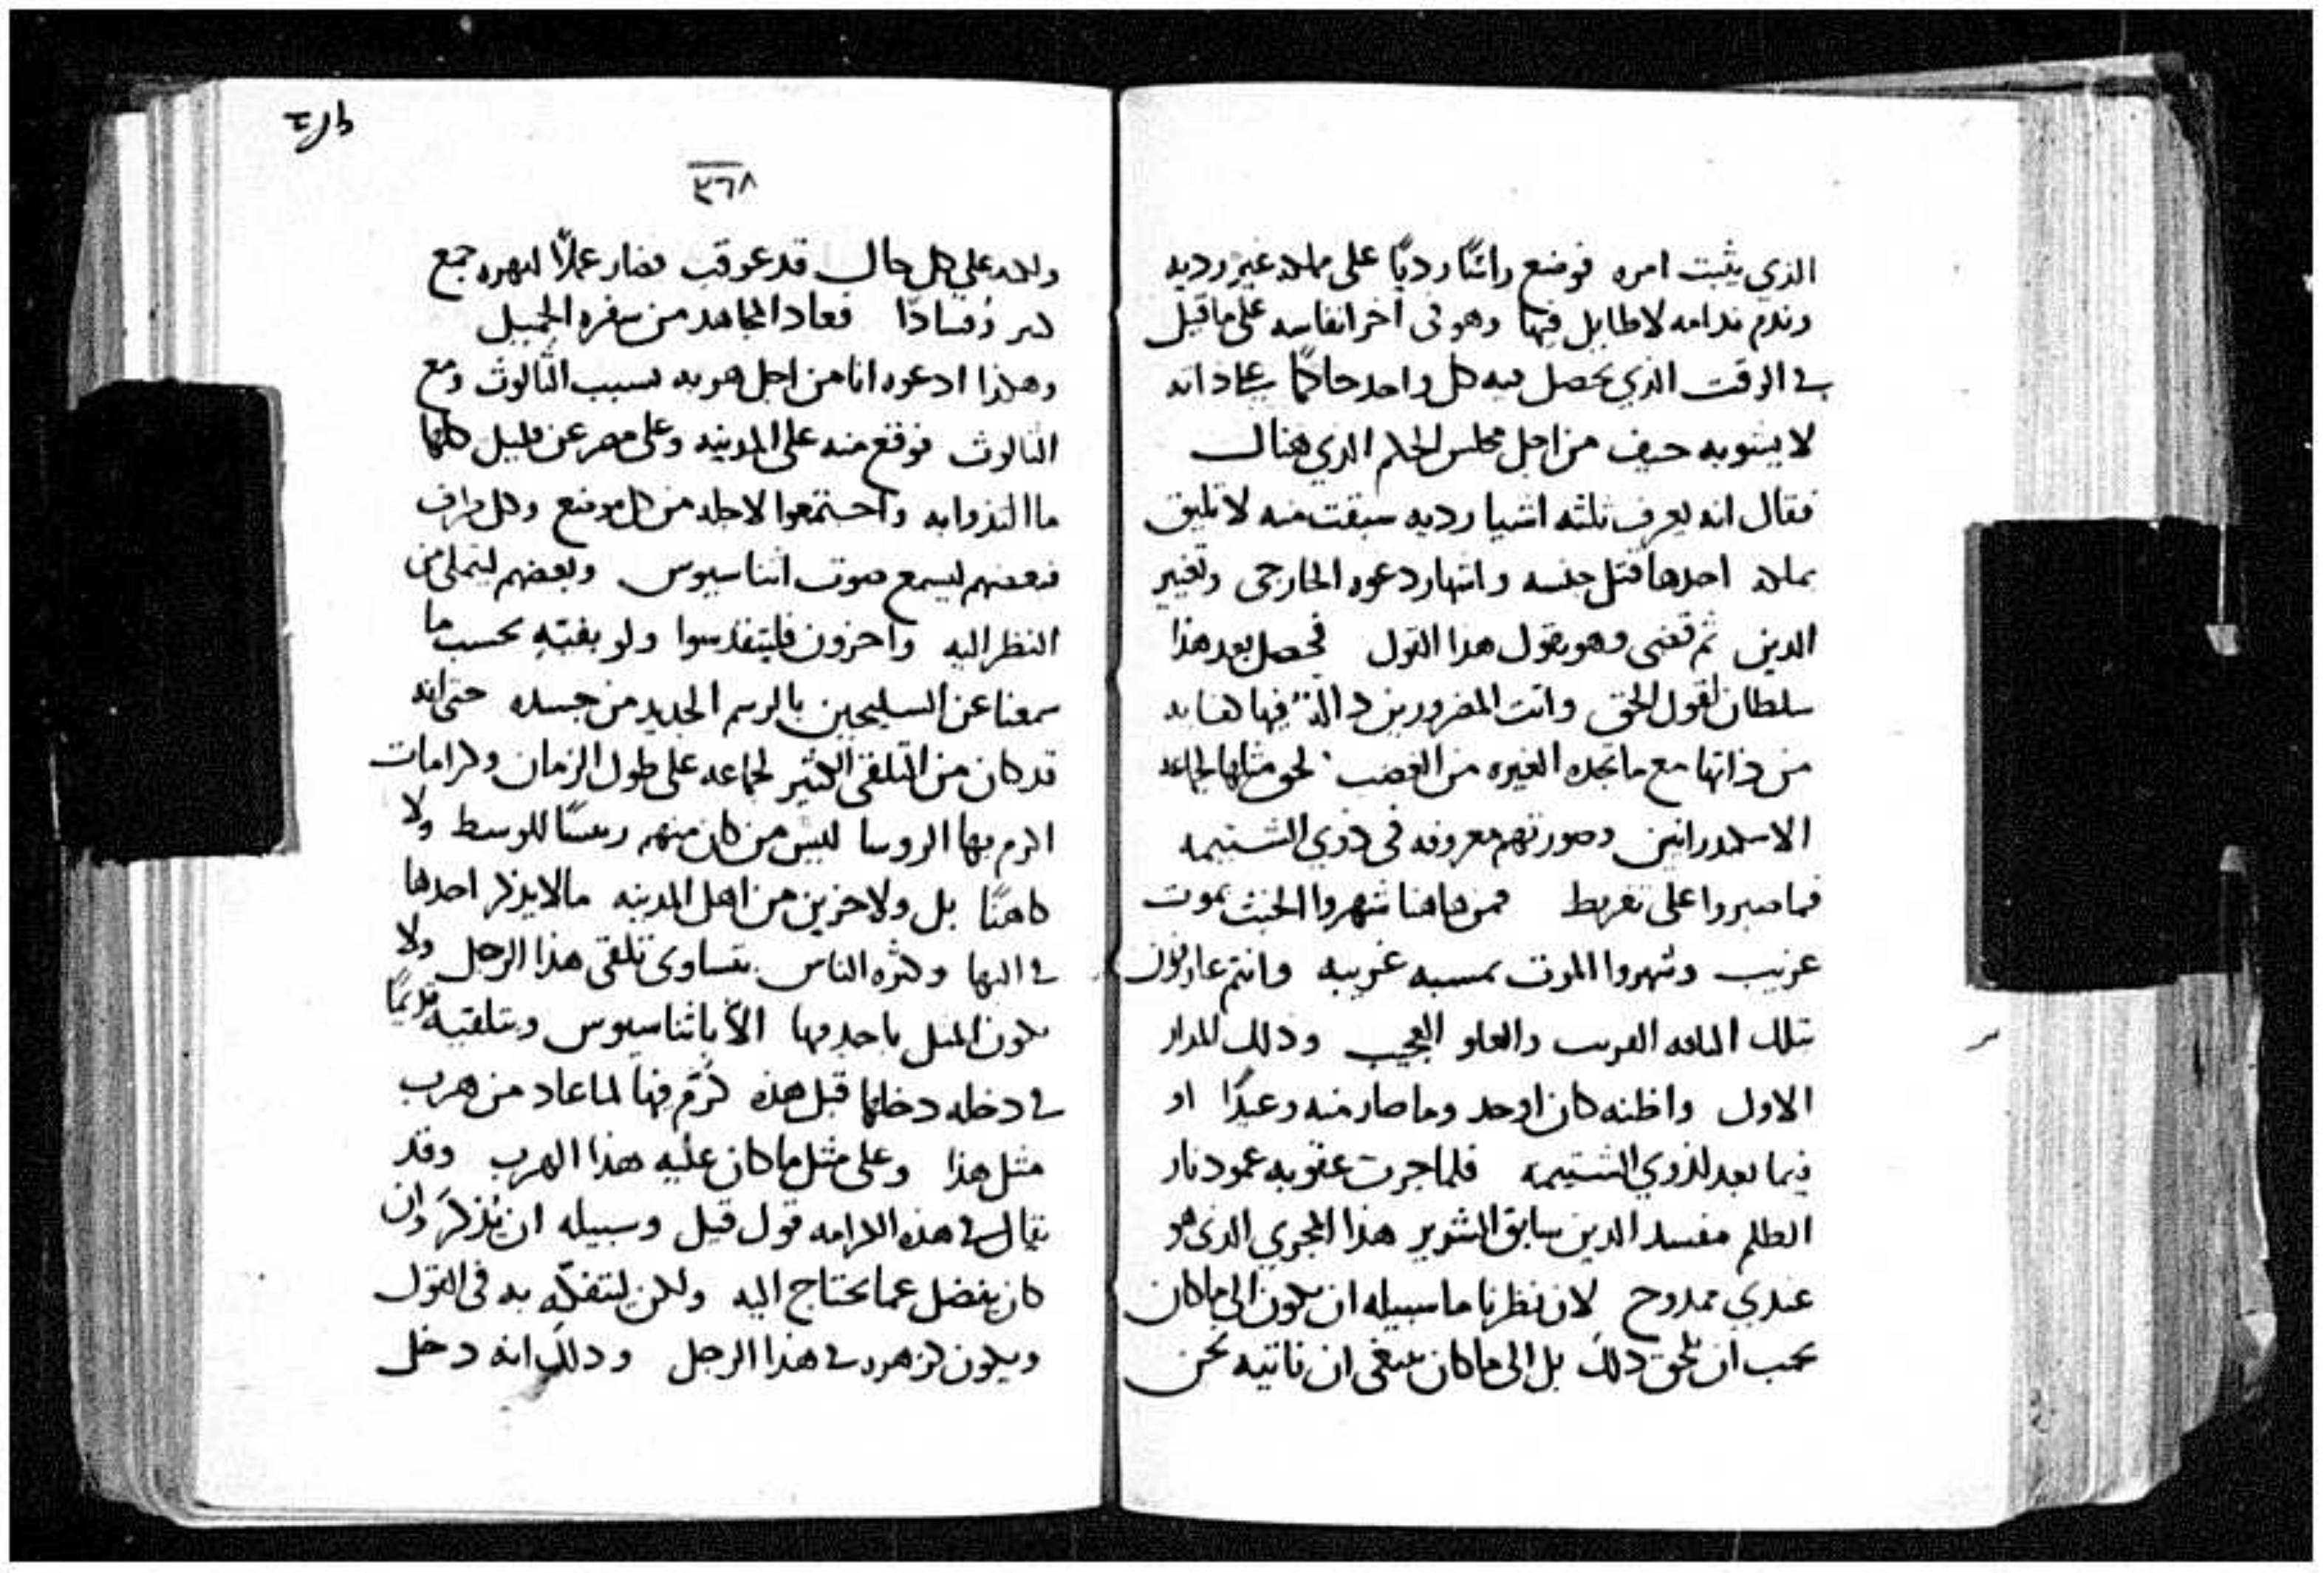 الذي يثبت امره فوضع راسًا رديًا على مملكه غير رديه
وندم ندامه لا طايل فيها وهو فى اخر انفاسه على ما قيل
في الوقت الذي يحصل فيه كل واحد حاكمًا على ذاته
لا ينوبه حيف من اجل مجلس الحكم الذي هناك
فقال انه يعرف ثلثه اشيا رديه سبقت منه لا تليق
بملكه احدها قتل جنسه واشهار دعوه الخارجى وتغيير
الدين ثم قضى وهو يقول هذا القول فحصل بعد هذا
سلطان لقول الحق وانت المضرورين دالة فيها كفايه
من ذاتها مع ما تجده الغيره من الغضب لحق مثلها لجماعه
الاسكندرانيين وصورتهم معروفه فى ذوي الشتيمه
فما صبروا على تفريط فمن هاهنا شهروا الخبث بموت
غريب وشهروا الموت بمسبه غريبه وانتم عارفون
بتلك الناقه الغريب والعلو العجيب وذلك المدار
الاول واظنه كان اوحد وما صار منه وعيدًا او
فيما بعد لذوي الشتيمه فلما جرت عقوبه عمود نار
الظلم مفسد الدين سابق الشرير هذا المجري الذى هو
عندي ممدوح لان نظرنا ما سبيله ان يكون الى ما كان
يجب ان يلحق ذلك بل الى ما كان ينبغى ان ناتيه نحن
٣٦٨
ولكنه على كل حال قد عوقب فصار عملًا لنهره جمع
وفسادًا فعاد المجاهد من سفره الجميل
وهكذا ادعوه انا من اجل هربه بسبب الثالوث ومع
الثالوث فوقع منه على المدينه وعلى مصر عن قليل كلها
ما التذوا به واجتمعوا لاجله من كل موضع وكل طرف
فبعضهم ليسمع صوت اثناسيوس وبعضهم ليتملى من
النظر اليه واخرون فليتقدسوا ولو بفيئه بحسب ما
سمعنا عن السليحين بالرسم الجديد من جسده حتى انه
قد كان من التلقى الكثير لجماعه على طول الزمان وكرامات
اكرم بها الروسا ليس من كان منهم رئيسًا للوسط ولا
كاهنًا بل ولاخرين من اهل المدينه ما لا يذكر احدها
في البها وكثره الناس يتساوى تلقى هذا الرجل ولا
يكون المثل باحد منها الّا باثناسيوس وبتلقيه قديمًا
في دخله دخلها قبل هذه كُرّم فيها لما عاد من هرب
مثل هذا وعلى مثل ما كان عليه هذا الهرب وقد
يقال في هذه الكرامه قول قيل وسبيله ان يُذكَر وان
كان يفضل عما يحتاج اليه ولكن ليتفكّه به فى القول
ويكون كزهره في هذا الرجل وذلك انه دخل